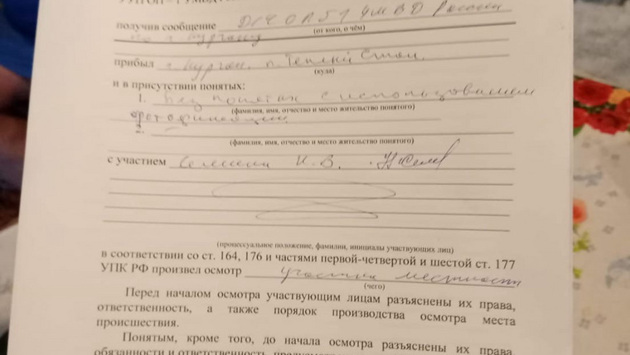 получив сообщение ДЧ ОП № 5 УМВД России
(от кого, о чём)
по г. Кургану
прибыл г. Курган, п. Теплый Стан
(куда)
и в присутствии понятых:
1. Без понятых с использованием
(фамилия, имя, отчество и место жительство понятого)
фотофиксации
2.
(фамилия, имя, отчество и место жительство понятого)
с участием И. В.
(процессуальное положение, фамилии, инициалы участвующих лиц)
в соответствии со ст. 164, 176 и частями первой-четвертой и шестой ст. 177
УПК РФ произвел осмотр участка местности
(чего)
Перед началом осмотра участвующим лицам разъяснены их права,
ответственность, а также порядок производства осмотра места
происшествия.
Понятым, кроме того, до начала осмотра разъяснены их права